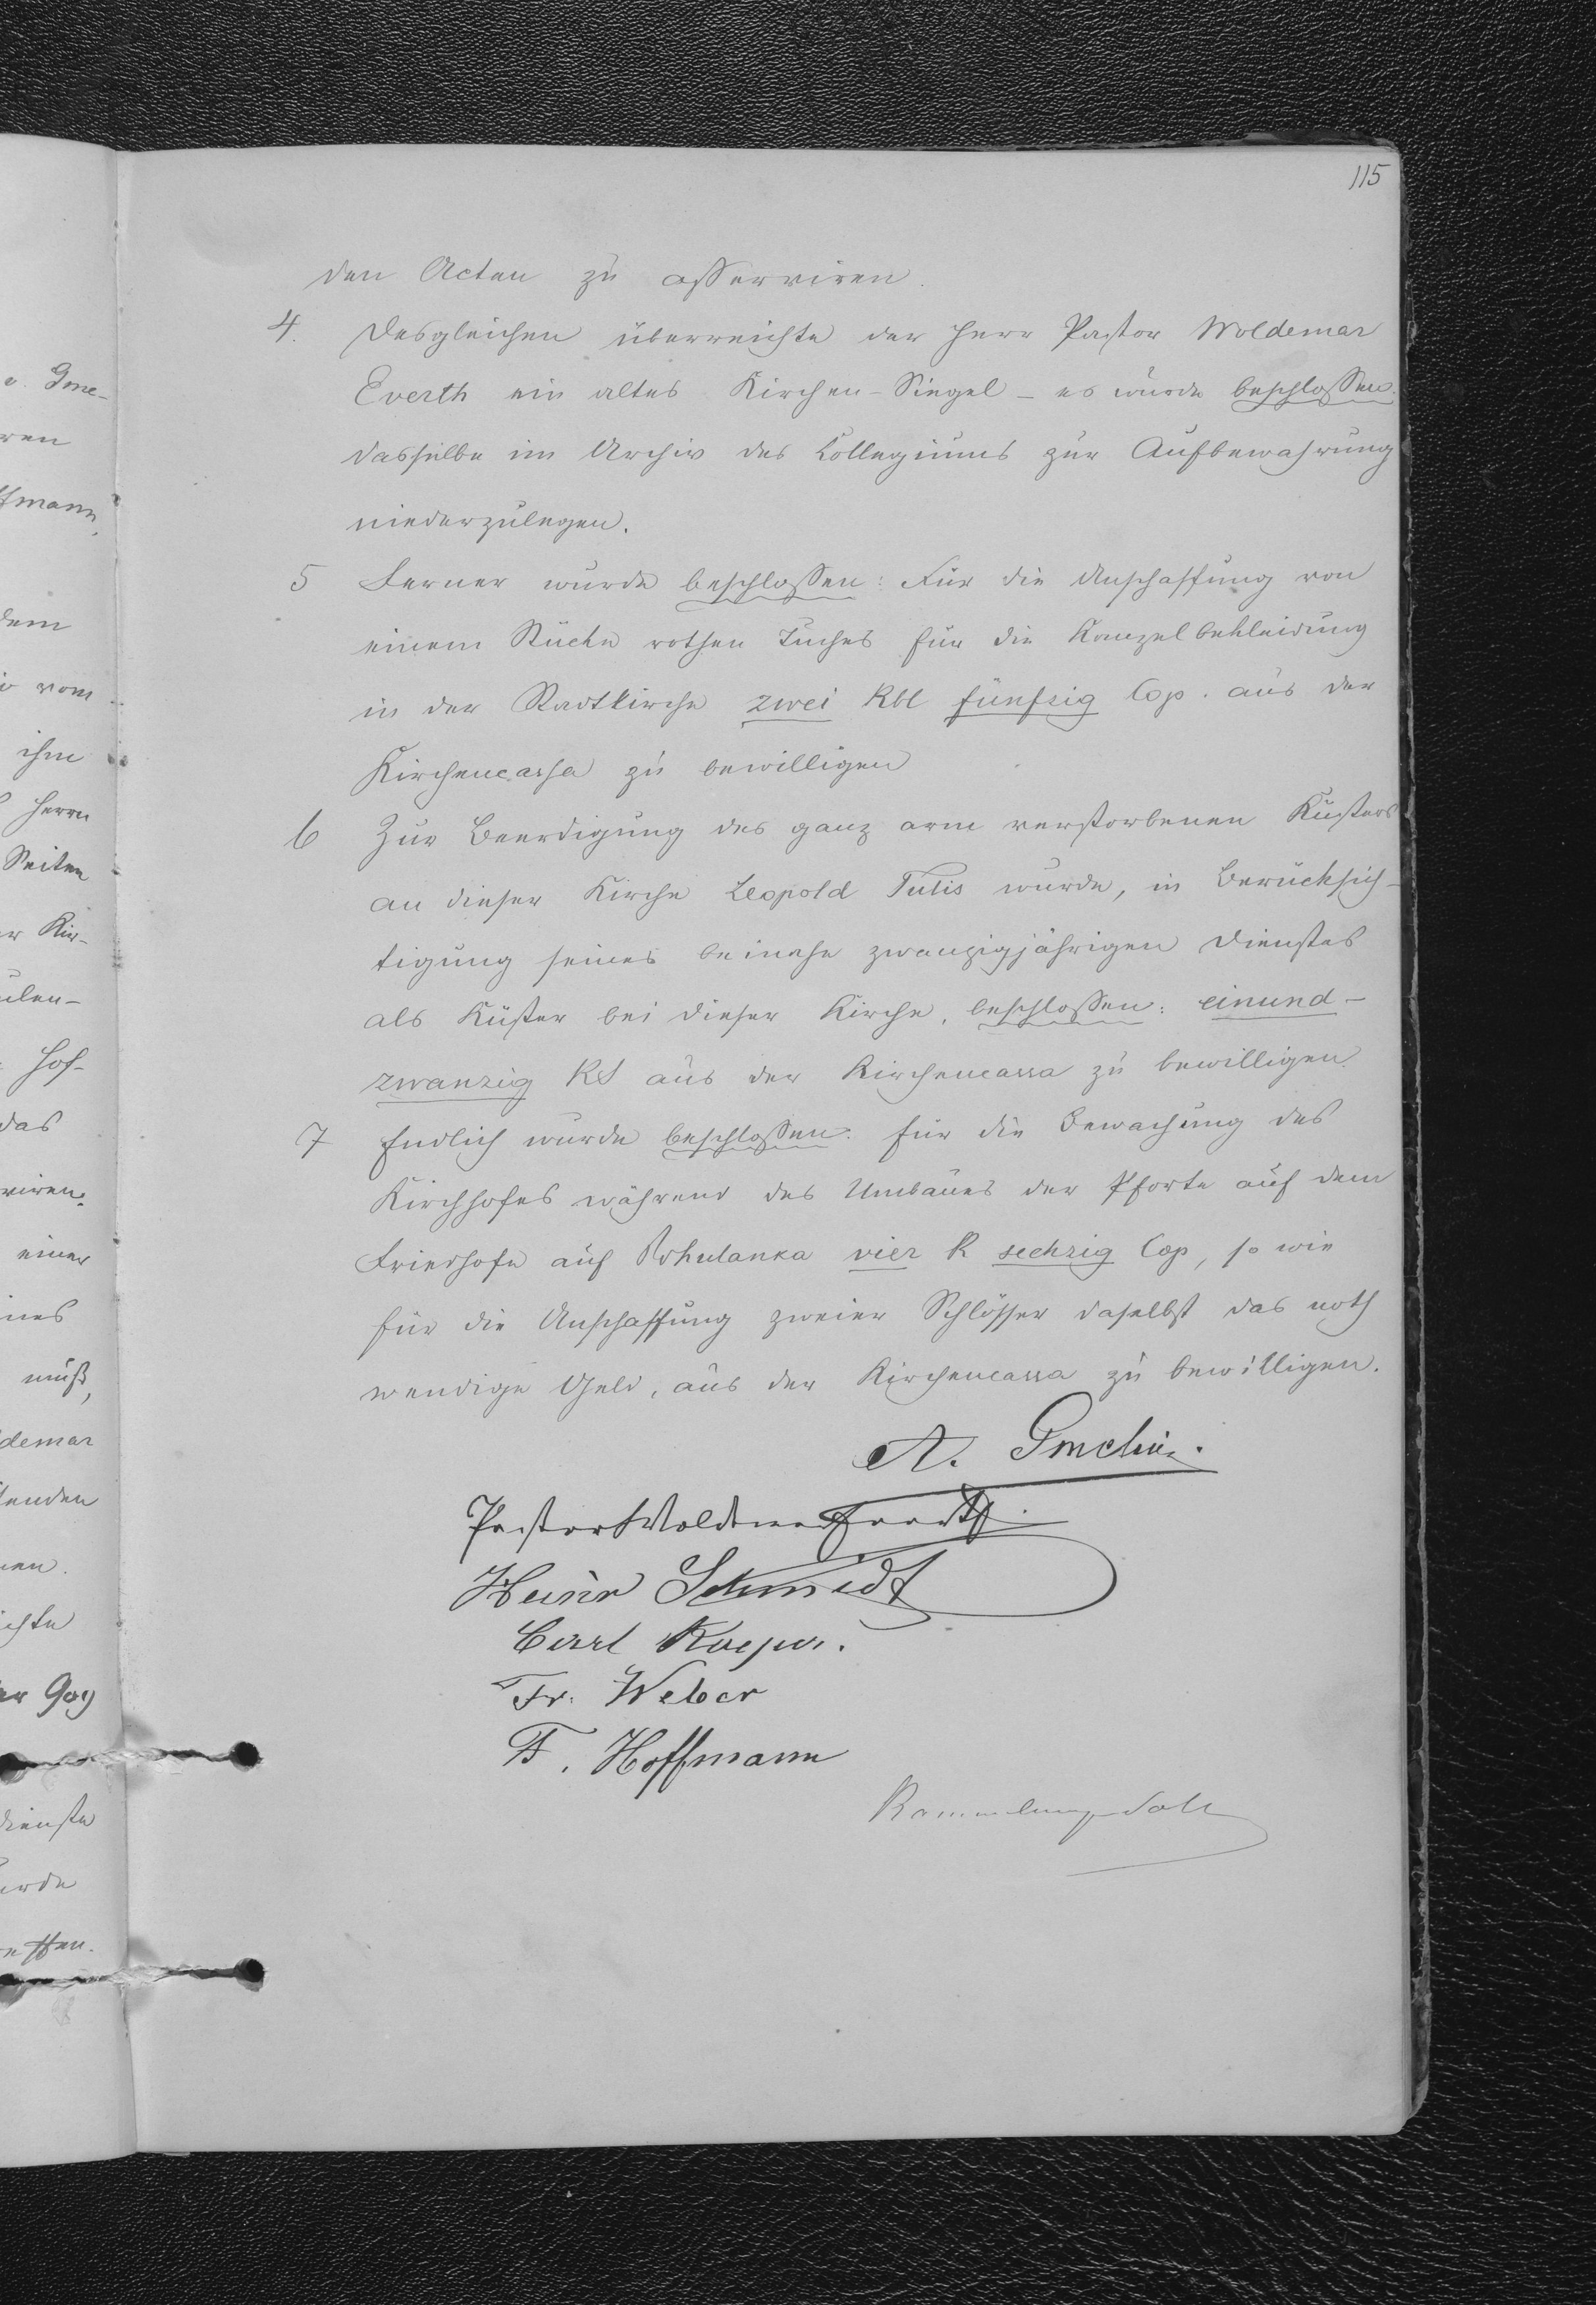 115
den Acten zu asserviren.
4. Desgleichen überreichte der Herr Pastor Woldemar
Everth ein altes Kirchen-Siegel – es wurde beschlossen
dasselbe im Archiv des Collegiums zur Aufbewahrung
niederzulegen.
5 Ferner wurde beschlossen: Für die Anschaffung von
einem Stücke rothen Tuches für die Kanzelbekleidung
in der Stadtkirche zwei Rbl fünfzig Cop. aus der
Kirchencassa zu bewilligen
6 Zur Beerdigung des ganz arm verstorbenen Küsters
an dieser Kirche Leopold Tutis wurde, in Berücksich-
tigung seines beinahe zwanzigjährigen Dienstes
als Küster bei dieser Kirche, beschlossen: einund-
zwanzig RS aus der Kirchencassa zu bewilligen.
7 Endlich wurde beschlossen: für die Bewachung des
Kirchhofes während des Umbaues der Pforte auf dem
Friedhofe auf Pohulanka vier R sechzig Cop, so wie
für die Anschaffung zweier Schlösser daselbst das noth
wendige Geld, aus der Kirchencassa zu bewilligen.
A. Gmelin.
Pastor Woldemar Everth.
Heinr Schmidt
Carl
Fr. Weber
F. Hoffmann